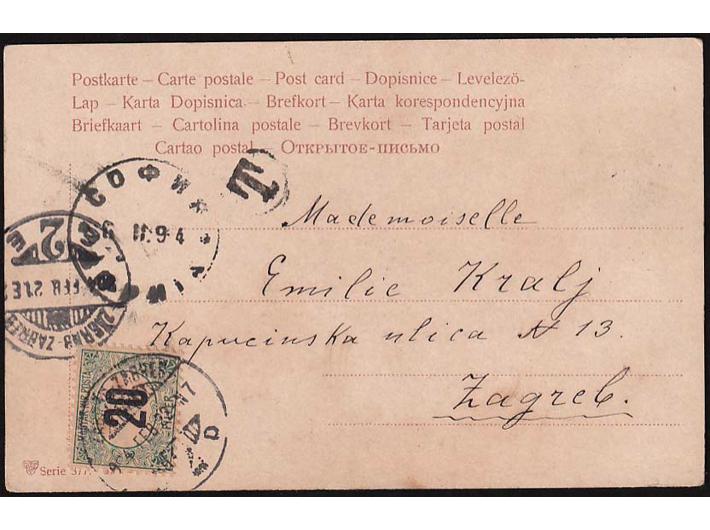 Postkarte – Carte postale – Post card – Dopisnice – Levelezö-
Lap – Karta Dopisnica – Brefkort – Karta korespondencyjna
Briefkaart – Cartolina postale – Brevkort – Tarjeta postal
Cartao postal – Открытое-письмо
T
СОФИЯ
II.94
2
ZAGRAB ZAGREB
FEB 21
Mademoiselle
Emilie Kralj
Kapucinska ulica N 13.
Zagreb.
20
Serie